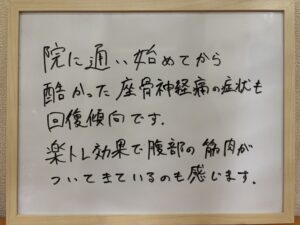 院に通い始めてから
酷かった座骨神経痛の症状も
回復傾向です.
楽トレ効果で腹部の筋肉が
ついてきているのも感じます.